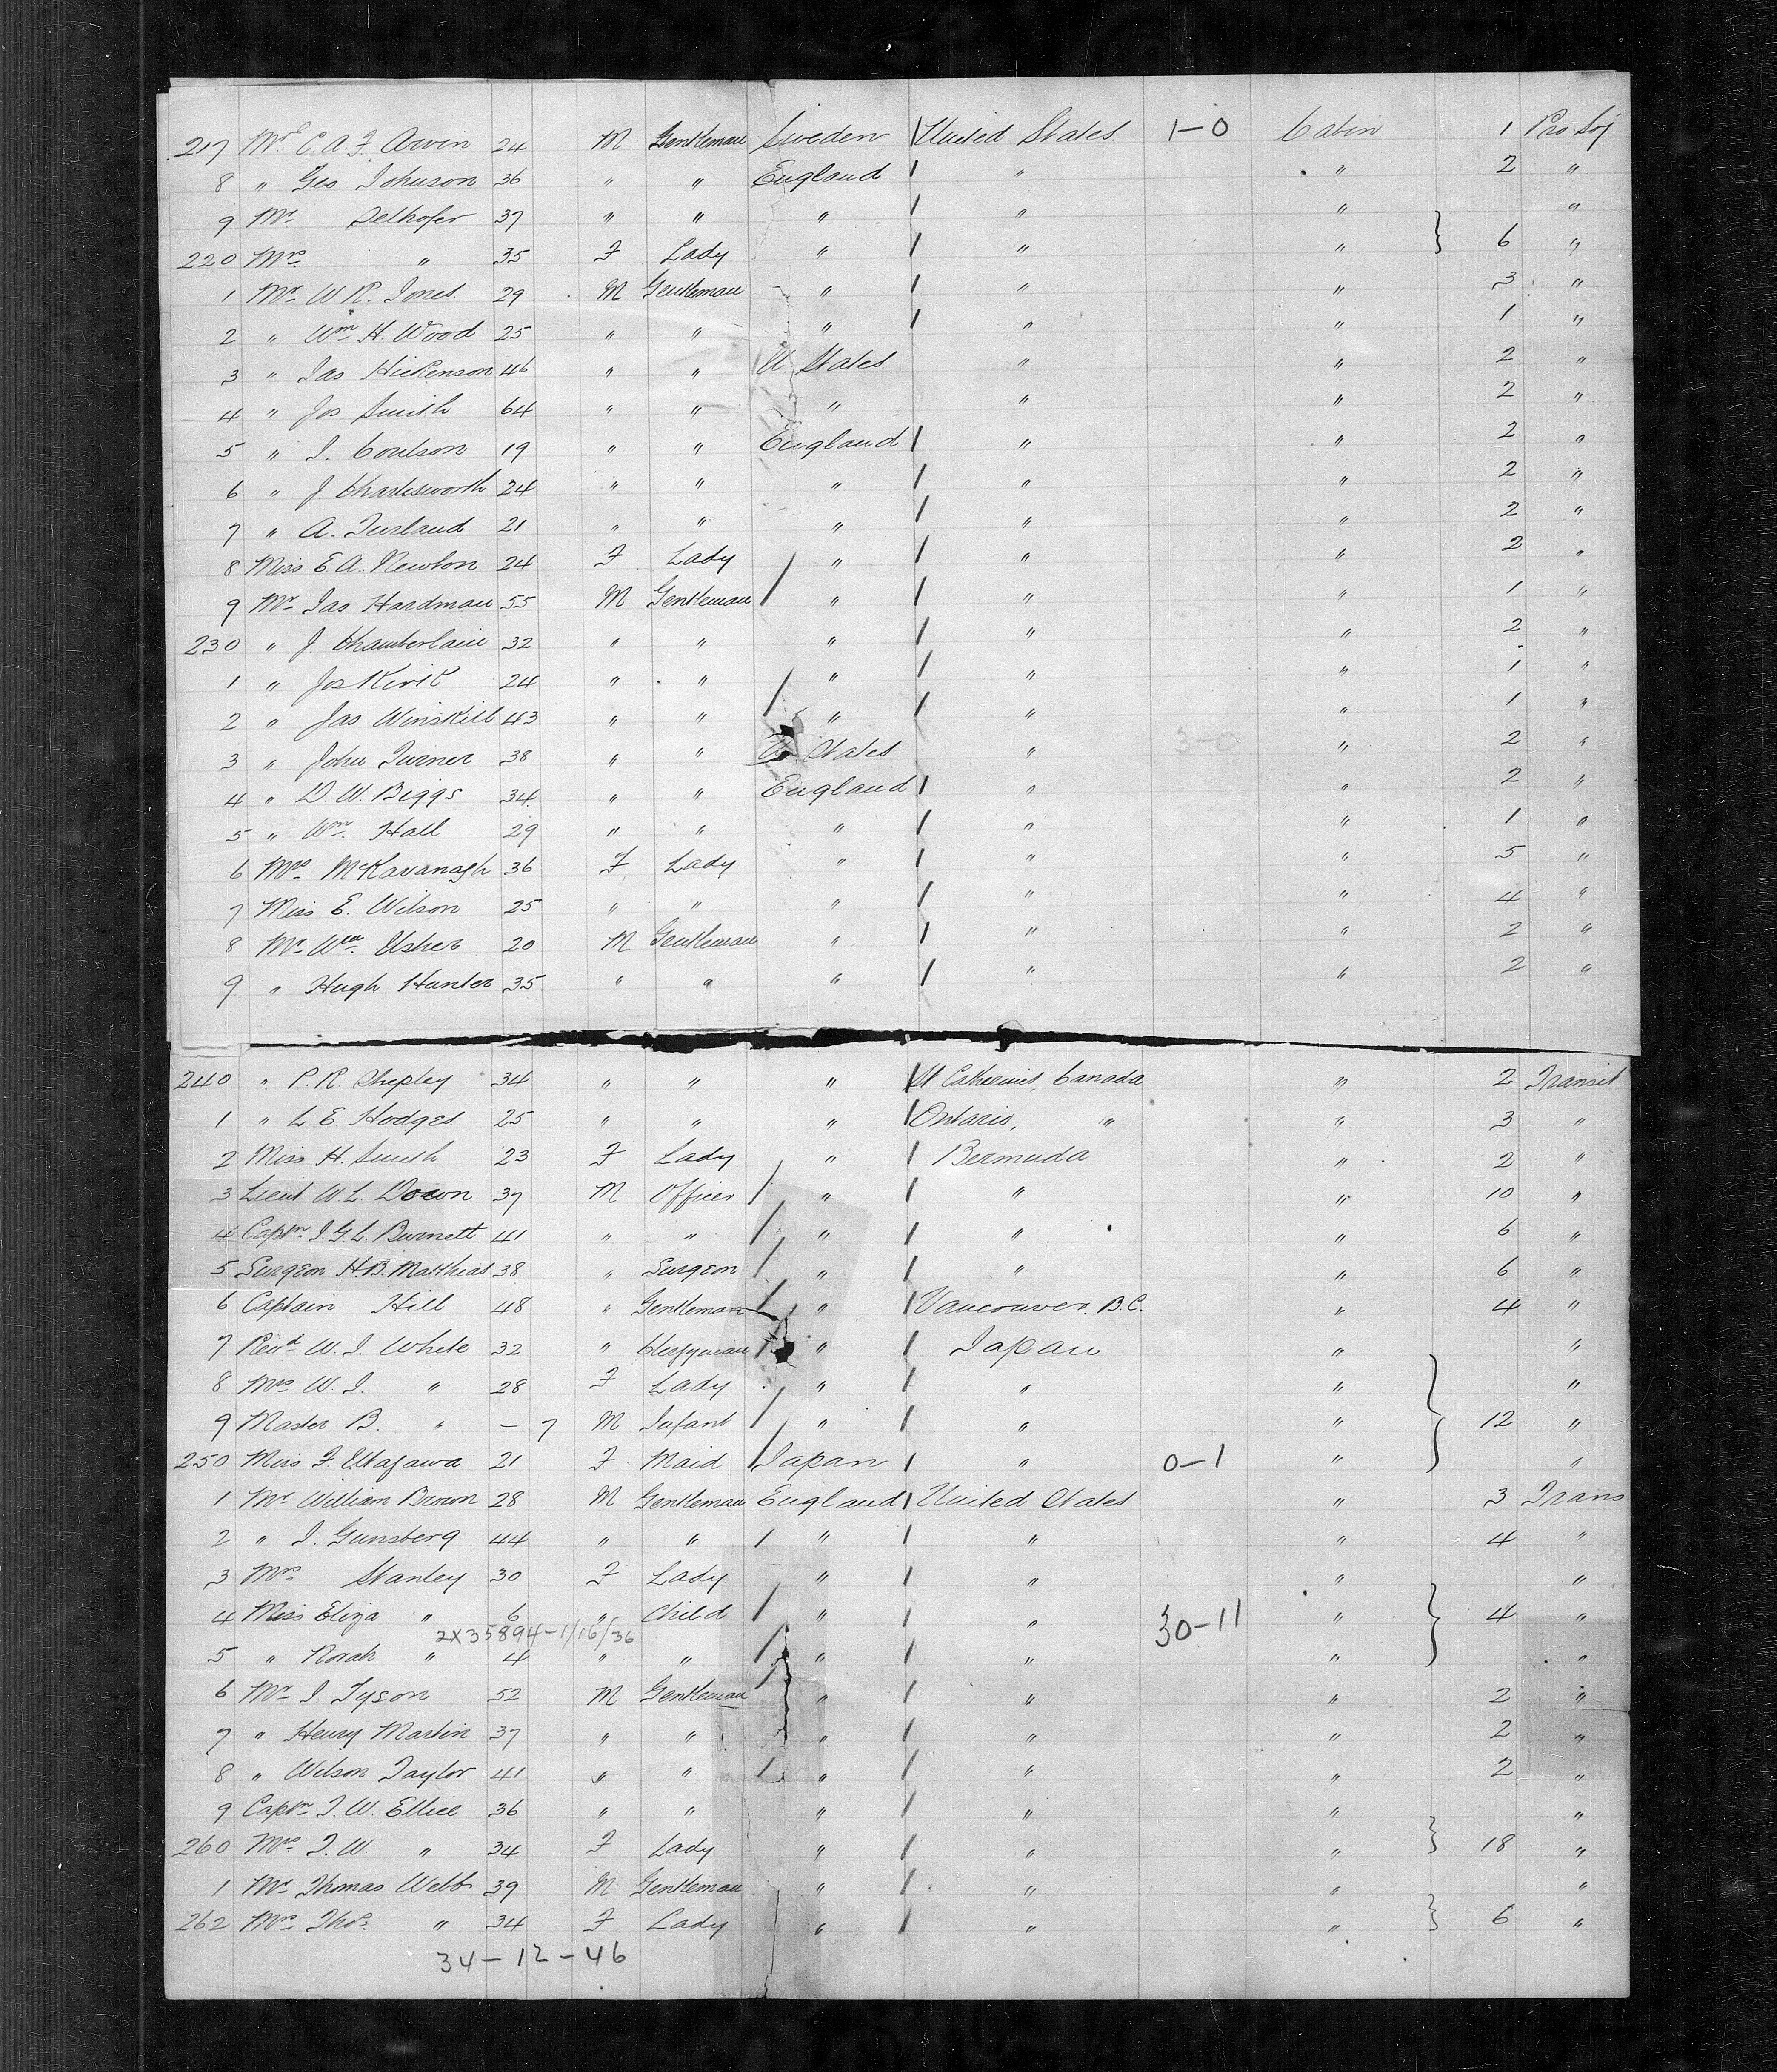 217 Mr C. A. F. Arvin 24 M Gentleman Sweden United States 1-0 Cabin 1 Pro Soj
8 " Geo Johnson 36 " " England " " 2 "
9 Mr Selhofer 37 " " " " " "
220 Mrs " 35 F Lady " " " 6 "
1 Mr W. R. Jones 29 M Gentleman " " " 3 "
2 " Wm H. Wood 25 " " " " " 1 "
3 " Jas Hickenson 46 " " U. States " " 2 "
4 " Jos Smith 64 " " " " " 2 "
5 " J. Coulson 19 " " England " " 2 "
6 " J Charlesworth 24 " " " " " 2 "
7 " A. Turland 21 " " " " " 2 "
8 Miss E. A. Newton 24 F Lady " " " 2 "
9 Mr Jas Hardman 55 M Gentleman " " " 1 "
230 " J. Chamberlain 32 " " " " " 2 "
1 " Jos 24 " " " " " 1 "
2 " Jas Winskill 43 " " " " " 1 "
3 " John Turner 38 " " U. States " 3-0 " 2 "
4 " D. W. Biggs 34 " " England " " 2 "
5 " Wm Hall 29 " " " " " 1 "
6 Mrs McKavanagh 36 F Lady " " " 5 "
7 Miss E. Wilson 25 " " " " " 4 "
8 Mr Wm Usher 20 M Gentleman " " " 2 "
9 " Hugh Hunter 35 " " " " " 2 "
240 " P. R. Shepley 34 " " " St Catherines, Canada " 2 Transit
1 " L. E. Hodges 25 " " " Ontario, " " 3 "
2 Miss H. Smith 23 F Lady " Bermuda " 2 "
3 Lieut W. L. Down 37 M Officer " " " 10 "
4 Captn J. G. L. Burnett 41 " " " " " 6 "
5 Surgeon H. B. Mathias 38 " Surgeon " " " 6 "
6 Captain Hill 48 " Gentleman " Vancouver. B.C. " 4 "
7 Revd W. J. White 32 " Clergyman " Japan " "
8 Mrs W. J. " 28 F Lady " " " "
9 Master B. " - 7 M Infant " " " 12 "
250 Miss F. 21 F Maid Japan " 0-1 " "
1 Mr William Brown 28 M Gentleman England United States " 3 Trans
2 " I. Gunsberg 44 " " " " " 4 "
3 Mrs Stanley 30 F Lady " " " "
4 Miss Eliza " 6 " Child " " 30-11 " 4 "
2X35894-1/16/36
5 " Norah " 4 " " " " " "
6 Mr J. Tyson 52 M Gentleman " " " 2 "
7 " Henry Martin 37 " " " " " 2 "
8 " Wilson Taylor 41 " " " " " 2 "
9 Captn J. W. Ellice 36 " " " " " "
260 Mrs J. W. " 34 F Lady " " " 18 "
1 Mr Thomas Webb 39 M Gentleman " " " "
262 Mrs Thos. " 34 F Lady " " " 6 "
34-12-46